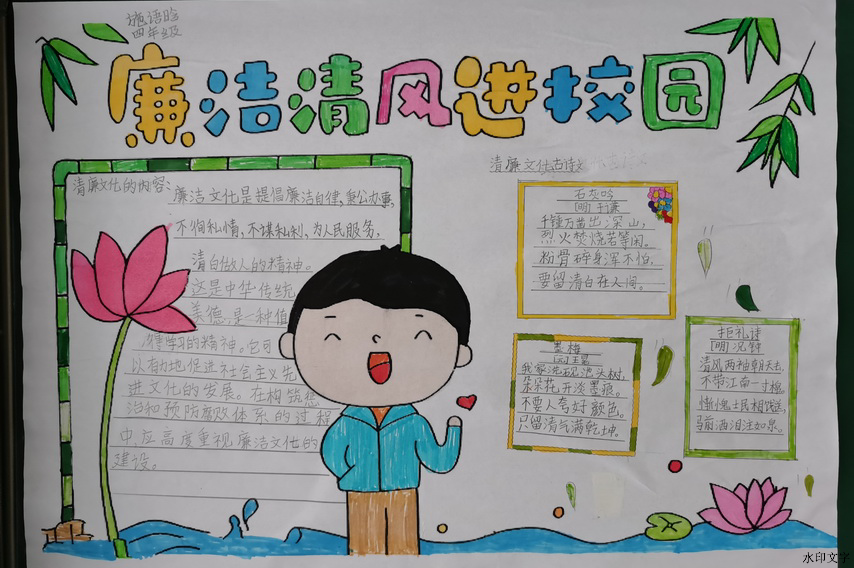 施语晗
四年级
廉洁清风进校园
清廉文化的内容:
廉洁文化是提倡廉洁自律,秉公办事,
不徇私情,不谋私利,为人民服务,
清白做人的精神。
这是中华传统
美德,是一种值
得学习的精神。它可
以有助地促进社会主义先
进文化的发展。在构筑惩
治和预防腐败体系的过程
中,应高度重视廉洁文化的
建设。
清廉文化古诗
石灰吟
[明]于谦
千锤万凿出深山,
烈火焚烧若等闲。
粉骨碎身浑不怕,
要留清白在人间。
墨梅
[元]王冕
我家洗砚池头树,
朵朵花开淡墨痕。
不要人夸好颜色,
只留清气满乾坤。
拒礼诗
[明]况钟
清风两袖朝天去,
不带江南一寸棉。
惭愧士民相饯送,
马前洒泪注如泉。
水印文字